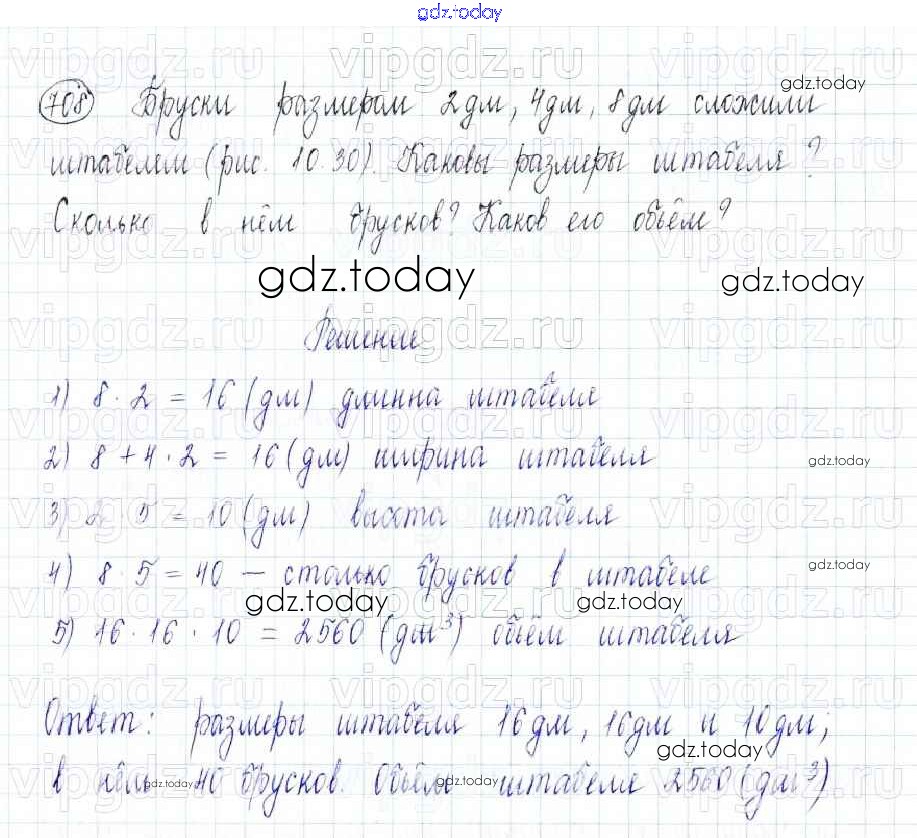 gdz.today
708 Бруски размером 2дм, 4дм, 8дм сложили
gdz.today
штабелем (рис. 10.30). Каковы размеры штабеля?
Сколько в нём брусков? Каков его объём?
gdz.today gdz.today
Решение
1) 8 · 2 = 16 (дм) длинна штабеля
2) 8 + 4 · 2 = 16 (дм) ширина штабеля
gdz.today
3) 2 · 5 = 10 (дм) высота штабеля
4) 8 · 5 = 40 — столько брусков в штабеле
gdz.today
gdz.today gdz.today
5) 16 · 16 · 10 = 2560 (дм³) объём штабеля
Ответ: размеры штабеля 16дм, 16дм и 10дм;
gdz.today
в нём 40 брусков. Объём штабеля 2560 (дм³)
gdz.today gdz.today
vipgdz.ru vipgdz.ru vipgdz.ru